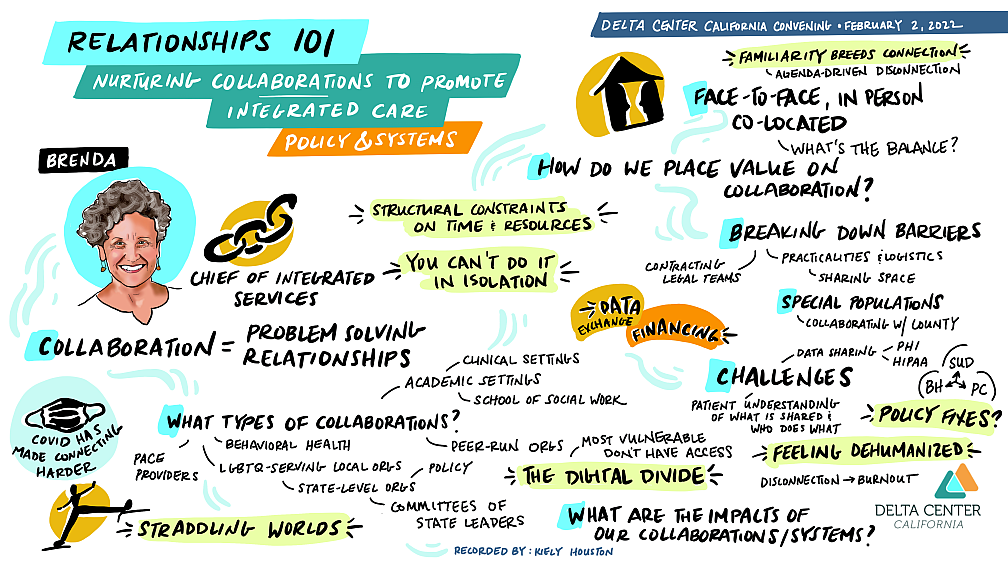 RELATIONSHIPS 101
NURTURING COLLABORATIONS TO PROMOTE
INTEGRATED CARE
POLICY & SYSTEMS
BRENDA
CHIEF OF INTEGRATED
SERVICES
COLLABORATION = PROBLEM SOLVING
RELATIONSHIPS
COVID HAS
MADE CONNECTING
HARDER
STRADDLING WORLDS
WHAT TYPES OF COLLABORATIONS?
CLINICAL SETTINGS
ACADEMIC SETTINGS
SCHOOL OF SOCIAL WORK
PACE
PROVIDERS
BEHAVIORAL HEALTH
LGBTQ-SERVING LOCAL ORGS
STATE-LEVEL ORGS
POLICY
COMMITTEES OF
STATE LEADERS
PEER-RUN ORGS
MOST VULNERABLE
DON'T HAVE ACCESS
THE DIGITAL DIVIDE
STRUCTURAL CONSTRAINTS
ON TIME & RESOURCES
YOU CAN'T DO IT
IN ISOLATION
DELTA CENTER CALIFORNIA CONVENING • FEBRUARY 2, 2022
FAMILIARITY BREEDS CONNECTION
AGENDA-DRIVEN DISCONNECTION
FACE-TO-FACE, IN PERSON
CO-LOCATED
WHAT'S THE BALANCE?
HOW DO WE PLACE VALUE ON
COLLABORATION?
BREAKING DOWN BARRIERS
CONTRACTING
LEGAL TEAMS
PRACTICALITIES & LOGISTICS
SHARING SPACE
SPECIAL POPULATIONS
COLLABORATING W/ COUNTY
DATA
EXCHANGE
FINANCING
CHALLENGES
DATA SHARING
PHI
HIPAA
SUD
BH
PC
PATIENT UNDERSTANDING
OF WHAT IS SHARED &
WHO DOES WHAT
POLICY FIXES?
FEELING DEHUMANIZED
DISCONNECTION → BURNOUT
WHAT ARE THE IMPACTS OF
OUR COLLABORATIONS/SYSTEMS?
DELTA CENTER
CALIFORNIA
RECORDED BY: KIELY HOUSTON